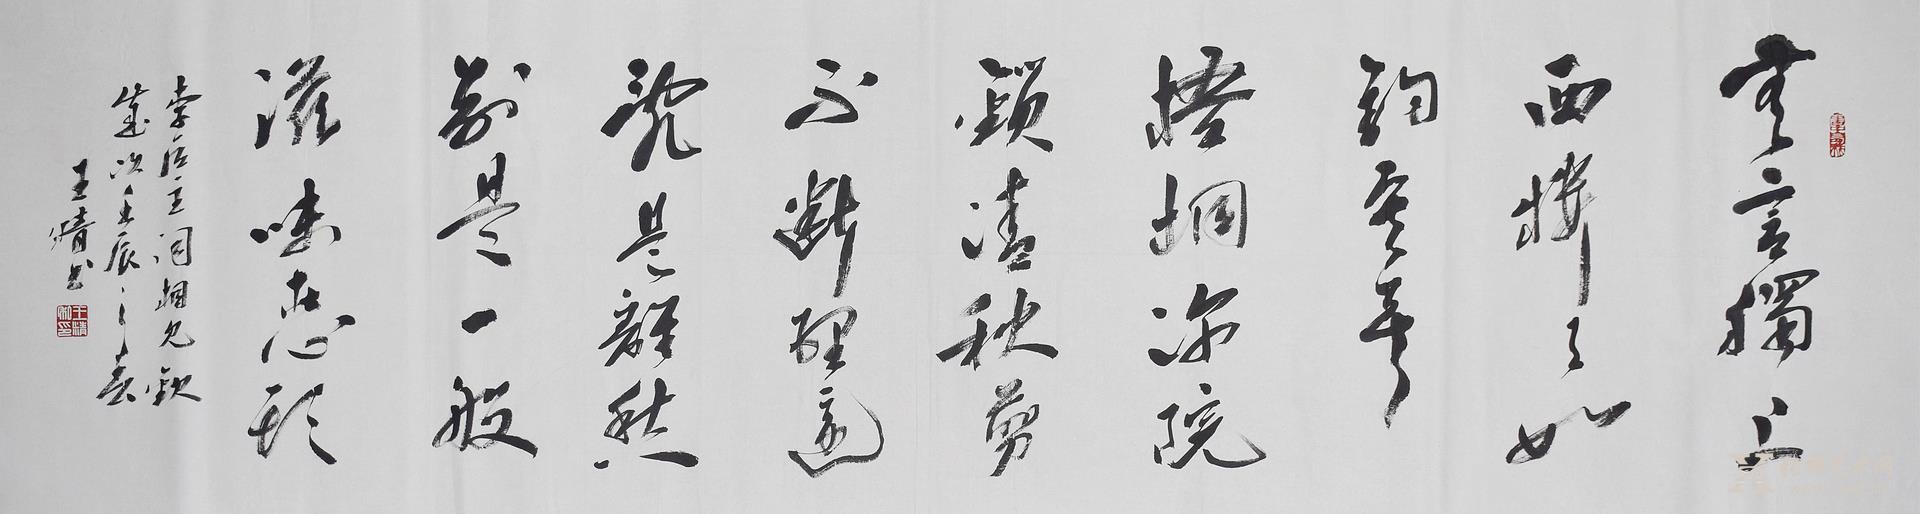 無言獨上
西樓月如
鈎寂寞
梧桐深院
鎖清秋剪
不斷理還
亂是離愁
别是一般
滋味在心頭
李后主词相見歡
歲次壬辰之春
王书